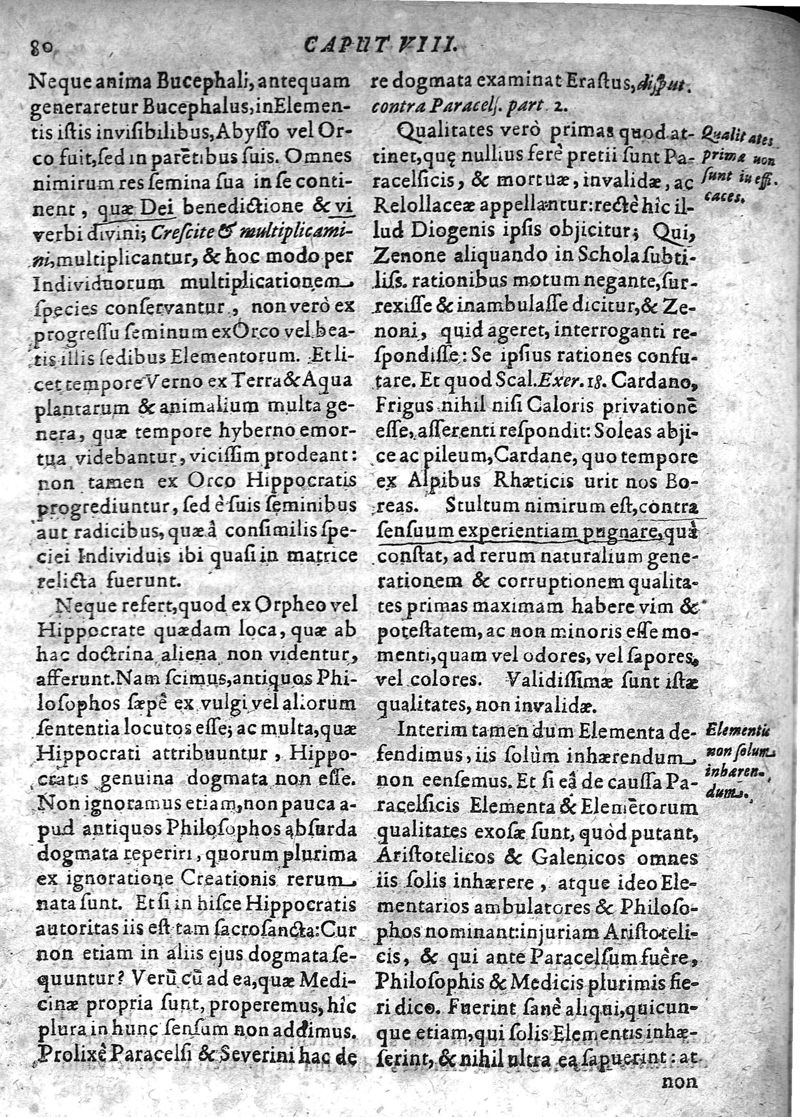 80
CAPUT VIII.
Neque anima Bucephali, antequam
generaretur Bucephalus, in Elemen-
tis istis invisibilibus, Abysso vel Or-
co fuit, sed in parētibus suis. Omnes
nimirum res semina sua in se conti-
nent, quæ Dei benedictione & vi
verbi divini; Crescite & multiplicami-
ni, multiplicantur, & hoc modo per
Individuorum multiplicationem
species conservantur, non verò ex
progressu seminum ex Orco vel bea-
tis illis sedibus Elementorum. Et li-
cet tempore Verno ex Terra & Aqua
plantarum & animalium multa ge-
nera, quæ tempore hyberno emor-
tua videbantur, vicissim prodeant:
non tamen ex Orco Hippocratis
progrediuntur, sed è suis seminibus
aut radicibus, quæ â consimilis spe-
ciei Individuis ibi quasi in matrice
relicta fuerunt.
Neque refert, quod ex Orpheo vel
Hippocrate quædam loca, quæ ab
hac doctrina aliena non videntur,
afferunt. Nam scimus, antiquos Phi-
losophos sæpê ex vulgi vel aliorum
sententia locutos esse; ac multa, quæ
Hippocrati attribuuntur, Hippo-
cratis genuina dogmata non esse.
Non ignoramus etiam, non pauca a-
pud antiquos Philosophos absurda
dogmata reperiri, quorum plurima
ex ignoratione Creationis rerum
nata sunt. Et si in hisce Hippocratis
autoritas iis est tam sacrosancta: Cur
non etiam in aliis ejus dogmata se-
quuntur? Verū cū ad ea, quæ Medi-
cinæ propria sunt, properemus, hîc
plura in hunc sensum non addimus.
Prolixê Paracelsi & Severini hac de
re dogmata examinat Erastus, disput.
contra Paracels. part. 2.
Qualitates verò primas quod at-
tinet, quę nullius ferè pretii sunt Pa-
racelsicis, & mortuæ, invalidæ, ac
Relollaceæ appellantur: rectè hîc il-
lud Diogenis ipsis objicitur; Qui,
Zenone aliquando in Schola subti-
liss. rationibus motum negante, sur-
rexisse & inambulasse dicitur, & Ze-
noni, quid ageret, interroganti re-
spondisse: Se ipsius rationes confu-
tare. Et quod Scal. Exer. 18. Cardano,
Frigus nihil nisi Caloris privationē
esse, asserenti respondit: Soleas abji-
ce ac pileum, Cardane, quo tempore
ex Alpibus Rhæticis urit nos Bo-
reas. Stultum nimirum est, contra
sensuum experientiam pugnare, quâ
constat, ad rerum naturalium gene-
rationem & corruptionem qualita-
tes primas maximam habere vim &
potestatem, ac non minoris esse mo-
menti, quam vel odores, vel sapores,
vel colores. Validissimæ sunt istæ
qualitates, non invalidæ.
Interim tamen dum Elementa de-
fendimus, iis solùm inhærendum
non censemus. Et si eâ de caussa Pa-
racelsicis Elementa & Elemētorum
qualitates exosæ sunt, quòd putant,
Aristotelicos & Galenicos omnes
iis solis inhærere, atque ideo Ele-
mentarios ambulatores & Philoso-
phos nominant: injuriam Aristoteli-
cis, & qui ante Paracelsum fuêre,
Philosophis & Medicis plurimis fie-
ri dico. Fuerint sanê aliqui, quicun-
que etiam, qui solis Elementis inhæ-
serint, & nihil ultra ea sapuerint: at
non
Qualitates
primæ non
sunt ineffi-
caces.
Elementis
non solum
inhæren-
dum.